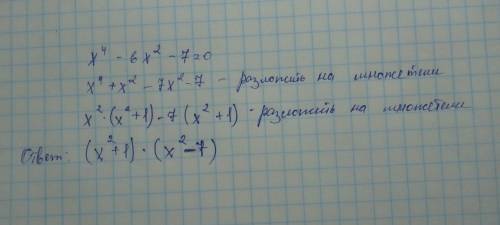 x⁴ - 6x² - 7 = 0
x⁴ + x² - 7x² - 7 - разложить на множетили
x² · (x² + 1) - 7 (x² + 1) - разложить на множетили
Ответ: (x² + 1) · (x² - 7)